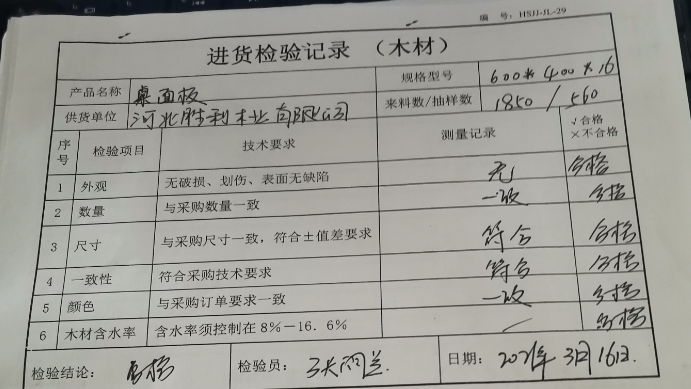 编 号：HSJJ-JL-29
进货检验记录 （木材）
产品名称 桌面板 规格型号 600*400*16
供货单位 河北胜利木业有限公司 来料数/抽样数 1850/560
序号 检验项目 技术要求 测量记录 √合格 ×不合格
1 外观 无破损、划伤、表面无缺陷 无 合格
2 数量 与采购数量一致 一致 合格
3 尺寸 与采购尺寸一致，符合±值差要求 符合 合格
4 一致性 符合采购技术要求 符合 合格
5 颜色 与采购订单要求一致 一致 合格
6 木材含水率 含水率须控制在8%-16.6% / 合格
检验结论： 合格 检验员： 日期： 2021年3月16日